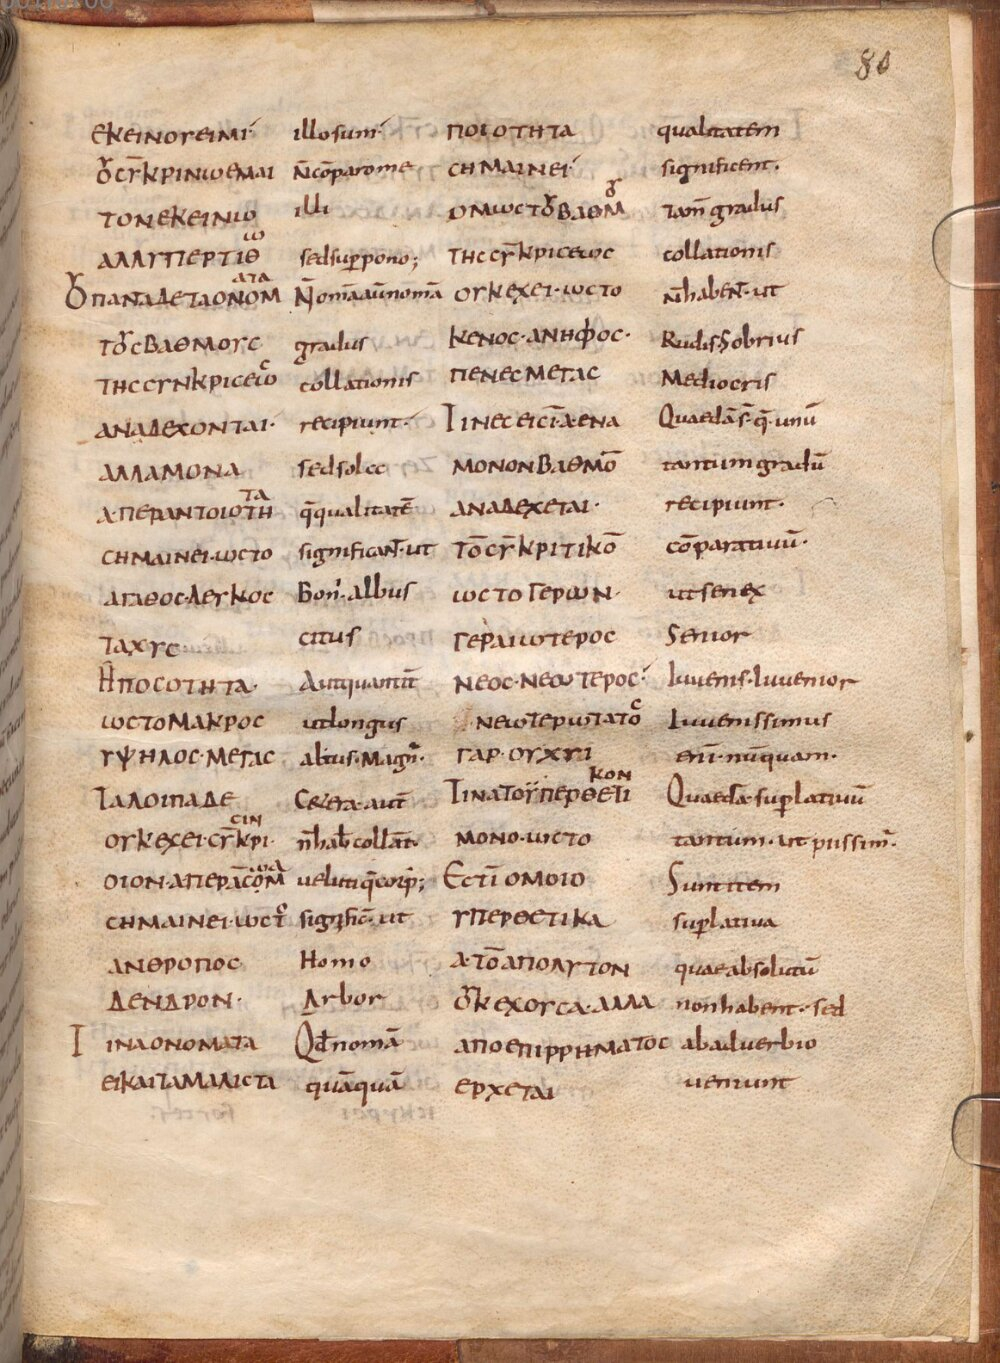 80
ΕΚΕΙΝΟΥΕΙΜΙ illosum ΠΟΙΟΤΗΤΑ qualitatem
ȣСΓ̄ΚΡΙΝΩΕΜΑΙ n̄cōparome СΗΜΑΙΝΕΙ significent.
ΤΟΝΕΚΕΙΝΙΩ illi ΟΜΩСΤȣΒΑΘΜȣ tam̄ gradus
ΑΛΛΥΠΕΡΤΙΘω sedsuppono; ΤΗССΓ̄ΚΡΙСΕωС collationis
ȣΠΑΝΑΔΕΤΑΟΝΟΜΑΤΑ N̄omāaūnomā ΟΥΚΕΧΕΙ·ΩСΤΟ n̄habeN̄·ut
ΤȣСΒΑΘΜΟΥС gradus ΚΕΝΟС·ΑΝΗΦΟС· Rudis·Sobrius
ΤΗССΓΝΚΡΙСΕωС collationis ΠΕΝΕСΜΕΓΑС Mediocris
ΑΝΑΔΕΧΟΝΤΑΙ· recipiunt· ΤΙΝΕСΕΙСῙ·Α·ΕΝΑ Quaedā·s̄·q̄·unū
ΑΛΛΑΜΟΝΑ sedsolae ΜΟΝΟΝΒΑΘΜŌ tantumgradū
Α·ΠΕΡΑΝΤΟΙΟΤΗΤΑ q̄qualitatē ΑΝΑΔΕΧΕΤΑΙ· recipiunt·
СΗΜΑΙΝΕΙ·ΩСΤΟ significaN̄·ut ΤŌСΓ̄ΚΡΙΤΙΚŌ cōparatiuū·
ΑΓΑΘΟС·ΛΕΥΚΟС Bon'·albus ΩСΤΟΓΕΡΩΝ· utsenex
ΤΑΧΥС citus ΓΕΡΑΙΩΤΕΡΟС Senior
ΗΠΟСΟΤΗΤΑ· Autquantit̄ ΝΕΟС·ΝΕωΤΕΡΟС· Iuuenis·Iuuenior
ΩСΤΟΜΑΚΡΟС utlongus ΝΕΩΤΕΡΩΤΑΤΟС Iuuenissimus
ΥΨΗΛΟС·ΜΕΓΑС altus·Magn'· ΓΑΡ·ΟΥΧΥΙ eni·nūquam·
ΤΑΛΟΙΠΑΔΕ Cetera·aut̄ ΤΙΝΑΤΟΥΠΕΡΘΕΤΙΚΟΝ Quaedā·suplatiuū
ΟΥΚΕΧΕΙ·СΓ̄ΚΡΙСΙΝ n̄hab̄collat̄· ΜΟΝΟ·ΩСΤΟ tantum·ut piissim'·
ΟΙΟΝ·ΑΠΕΡᾹСΟΜΑ uelutiq̄corp̄; ΕСΤΙΟΜΟΙΟ Suntitem
СΗΜΑΙΝΕΙ·ΩСΤΟ signific̄·ut ΥΠΕΡΘΕΤΙΚΑ suplatiua
ΑΝΘΡΟΠΟС Homo Α·ΤŌΑΠΟΛΥΤΟΝ quaeabsolutū
ΔΕΝΔΡΟΝ· Arbor ȣΚΕΧΟΥСΑ·ΑΛΛΑ nonhabent·sed
ΤΙΝΑΟΝΟΜΑΤΑ Qd̄nomā ΑΠΟΕΠΙΡΡΗΜΑΤΟС abaduerbio
ΕΙΚΑΙΤΑΜΑΛΙСΤΑ quāquā ΕΡΧΕΤΑΙ ueniunt